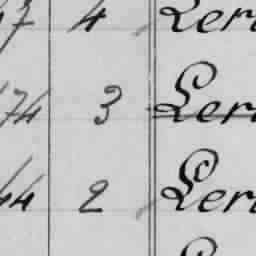 4 Ler
74 3 Ler
44 2 Ler